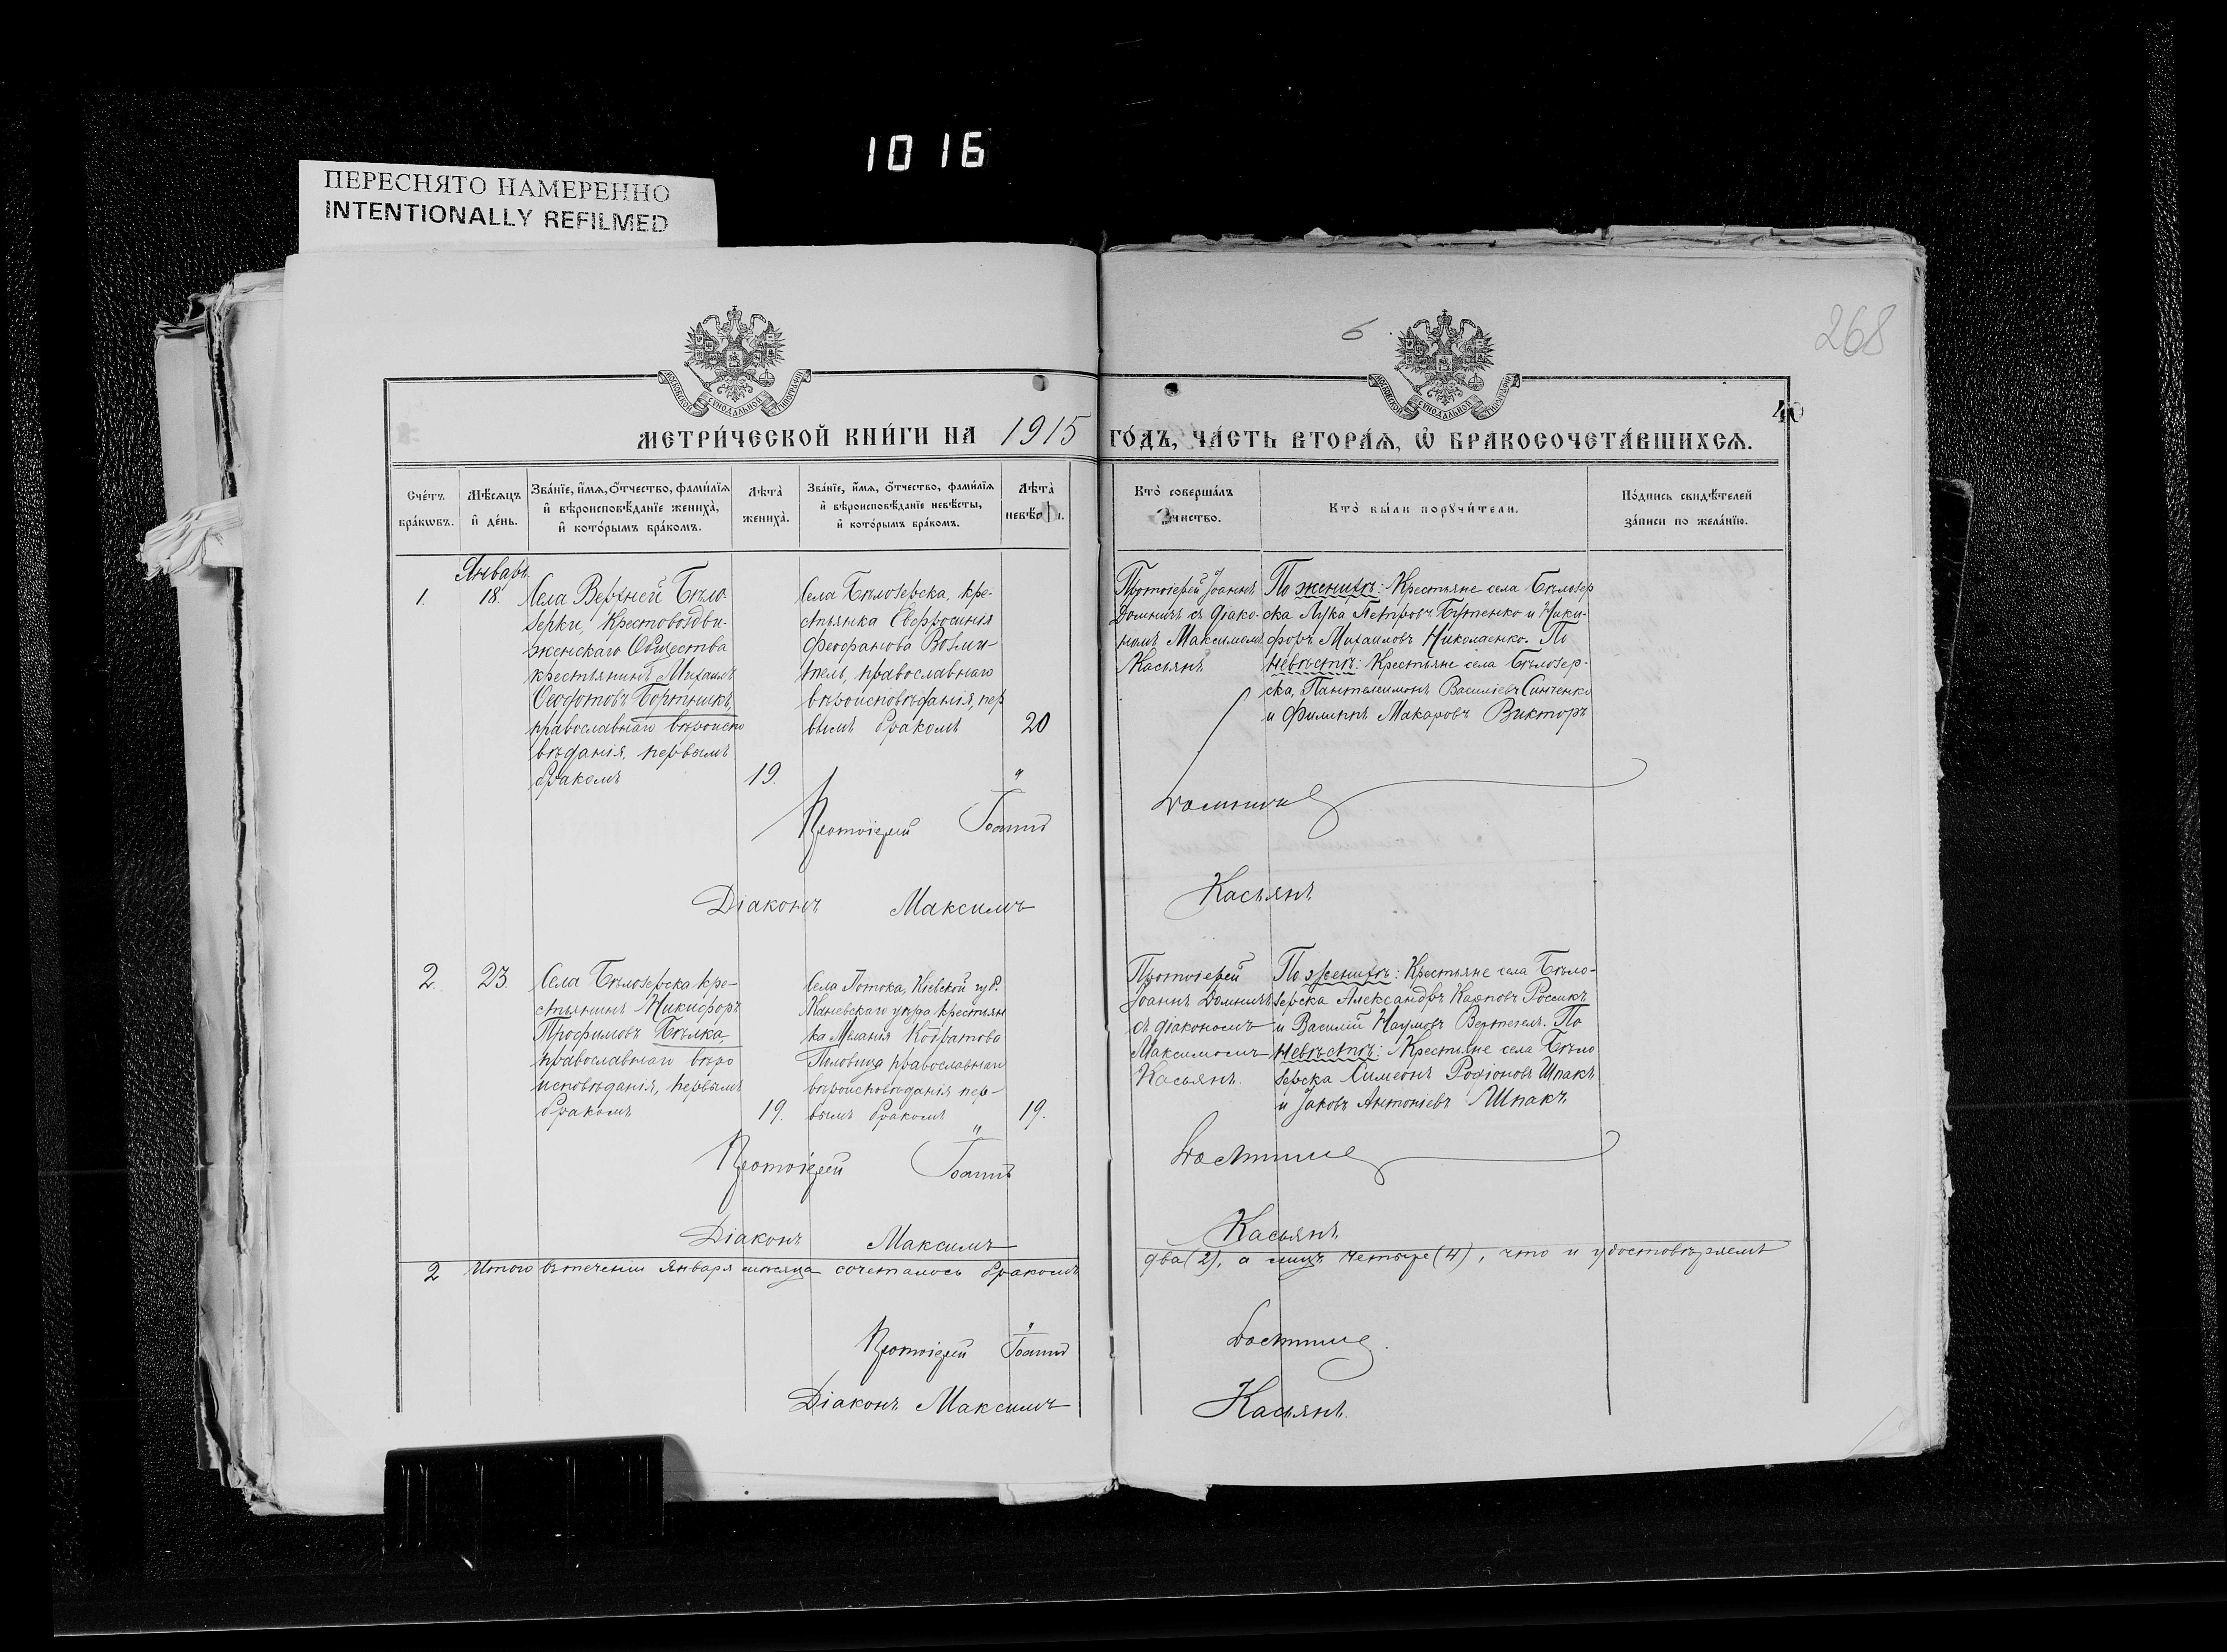 1016
ПЕРЕСНЯТО НАМЕРЕННО
INTENTIONALLY REFILMED
268
6
МОСКОВСКОЙ СѴНОДАЛЬНОЙ ТИПОГРАФІИ
МОСКОВСКОЙ СѴНОДАЛЬНОЙ ТИПОГРАФІИ
40
МЕТРИ́ЧЕСКОЙ КНИ́ГИ НА 1915 ГО́ДЪ, ЧА́СТЬ ВТОРА́Ѧ, Ѽ БРАКОСОЧЕТА́ВШИХСѦ.
Сче́тъ
бра́кѡвъ.
Мѣ́сѧцъ
и҆ де́нь.
Зва́нїе, и҆́мѧ, ѻ҆́тчество, фами́лїѧ
и҆ вѣроисповѣ́данїе жениха̀,
и҆ кото́рымъ бра́комъ.
Лѣта̀
жениха̀.
Зва́нїе, и҆́мѧ, ѻ҆́тчество, фами́лїѧ
и҆ вѣроисповѣ́данїе невѣ́сты,
и҆ кото́рымъ бра́комъ.
Лѣта̀
Кто̀ соверша́лъ
Кто̀ бы́ли порꙋчи́тели.
По́дпись свидѣ́телей
за́писи по жела́нїю.
Январь
1.
18.
Села Верхней Бѣло
зерки, Крестовоздви-
женскаго Общества
крестьянинъ Михаилъ
Феодотовъ Бортникъ,
православнаго вѣроиспо
вѣданія, первымъ
бракомъ
19.
Села Бѣлозерска, кре-
стьянка Евфросинія
Феофанова
православнаго
вѣроисповѣданія, пер
вымъ бракомъ
20
Протоіерей Іоаннъ
съ діако-
номъ Максимомъ
Касьянъ
По женихѣ: Крестьяне села Бѣлозер
ска Лука Петровъ Бутенко и Ники-
форъ Михаиловъ Николаенко. По
невѣстѣ: Крестьяне села Бѣлозер-
ска, Пантелеимонъ Василіевъ Синченко
и Филиппъ Макаровъ Викторъ
Протоіерей Іоаннъ
Діаконъ Максимъ Касьянъ
2.
23.
Села Бѣлозерска кре-
стьянинъ Никифоръ
Трофимовъ Бѣлка,
православнаго вѣро
исповѣданія, первымъ
бракомъ
19.
Села Потока, Кіевской губ.
Каневскаго уѣзда крестьян
ка Меланія
православнаго
вѣроисповѣданія пер-
вымъ бракомъ
19.
Протоіерей
Іоаннъ
съ діакономъ
Максимомъ
Касьянъ.
По женихѣ: Крестьяне села Бѣло-
зерска Александръ Карповъ
и Василій Наумовъ По
невѣстѣ: Крестьяне села Бѣло
зерска Симеонъ Родіоновъ Шпакъ
и Іаковъ Антоніевъ Шпакъ.
Протоіерей Іоаннъ
Діаконъ Максимъ Касьянъ
2 Итого втеченіи Января мѣсяца сочеталось бракомъ два (2), а лицъ четыре (4), что и удостовѣряемъ
Протоіерей Іоаннъ
Діаконъ Максимъ Касьянъ.